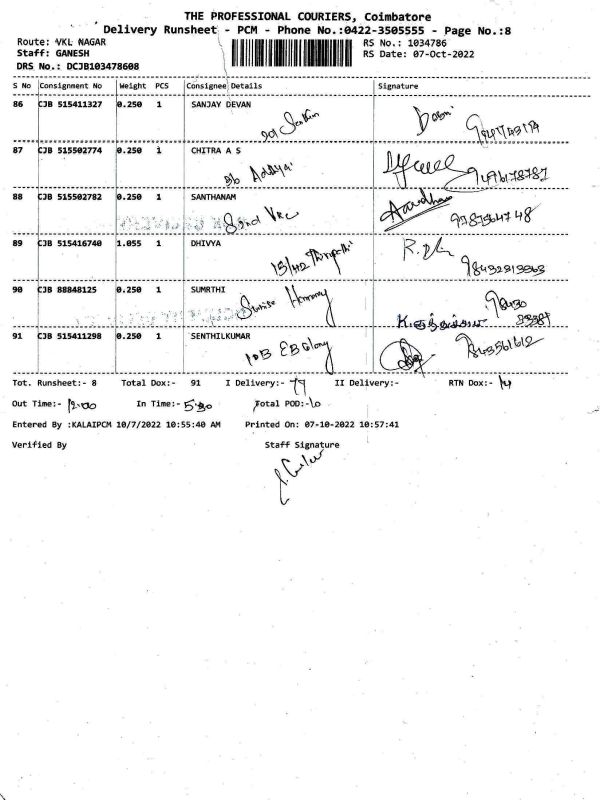 THE PROFESSIONAL COURIERS, Coimbatore
Delivery Runsheet - PCM - Phone No.:0422-3505555 - Page No.:8
Route: VKL NAGAR RS No.: 1034786
Staff: GANESH RS Date: 07-Oct-2022
DRS No.: DCJB103478608
S No Consignment No Weight PCS Consignee Details Signature
86 CJB 515411327 0.250 1 SANJAY DEVAN
87 CJB 515502774 0.250 1 CHITRA A S
9496178787
88 CJB 515502782 0.250 1 SANTHANAM
89 CJB 515416740 1.055 1 DHIVYA
90 CJB 88848125 0.250 1 SUMRTHI
Sunrise Harmony
91 CJB 515411298 0.250 1 SENTHILKUMAR
10B EB Glory 9843561612
Tot. Runsheet:- 8 Total Dox:- 91 I Delivery:- 77 II Delivery:- RTN Dox:- 14
Out Time:- 12:00 In Time:- 5:30 Total POD:- 10
Entered By :KALAIPCM 10/7/2022 10:55:40 AM Printed On: 07-10-2022 10:57:41
Verified By Staff Signature